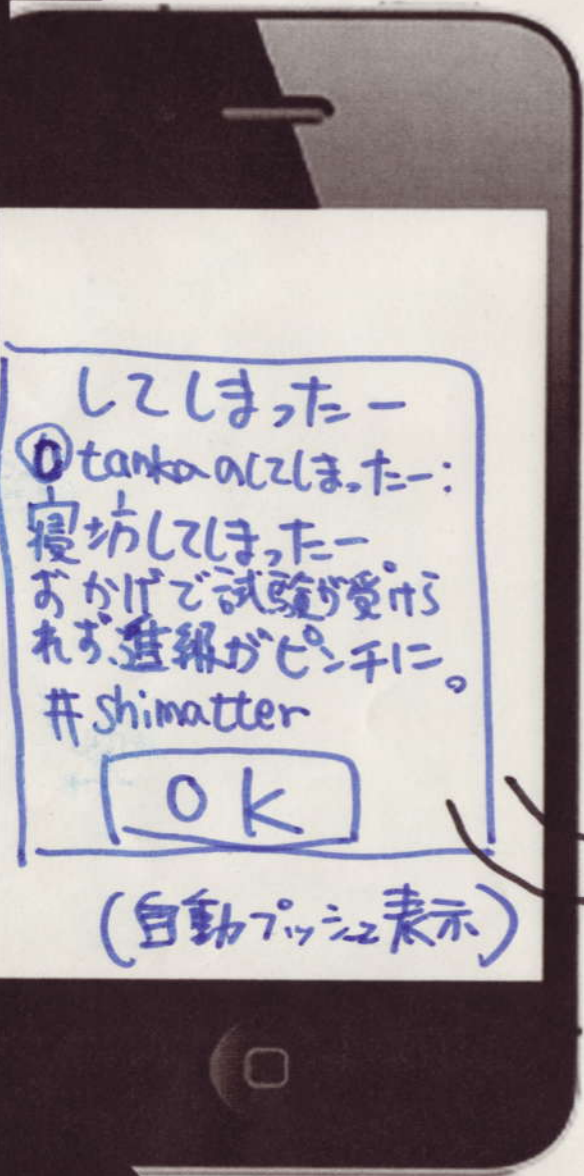 してしまったー
@tankaのしてしまったー:
寝坊してしまったー
おかげで試験が受けら
れず、進級がピンチに。
#shimatter
OK
(自動プッシュ表示)